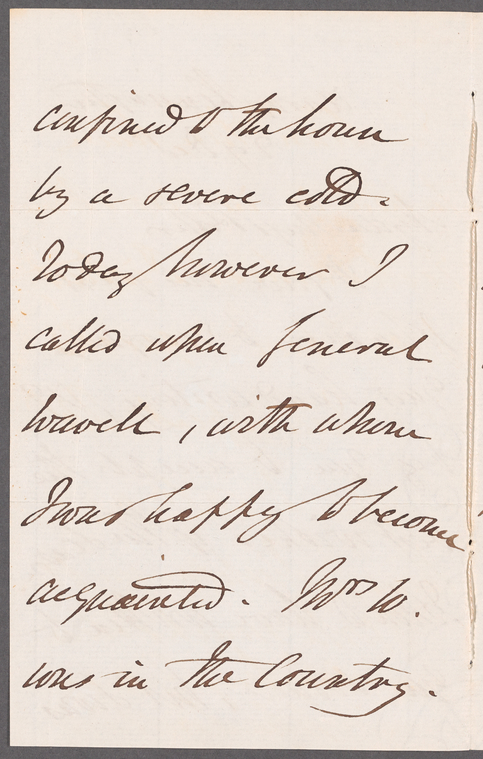 confined to the house
by a severe cold.
Today however I
called upon General
Wavell, with whom
I was happy to become
acquainted. Mrs W.
was in the Country.